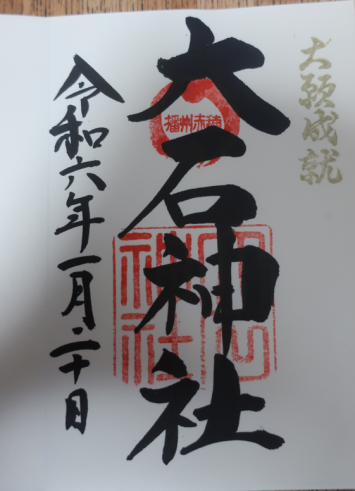 大願成就
大石神社
播州赤穂
大石神社
令和六年一月二十日